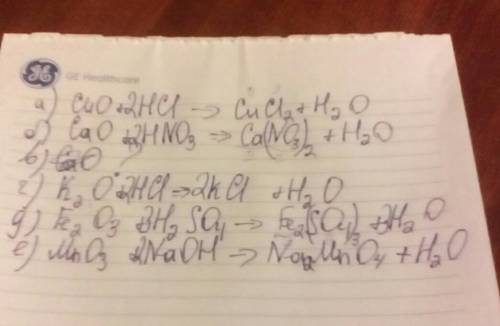 GE Healthcare
а) CuO + 2HCl → CuCl₂ + H₂O
б) CaO + 2HNO₃ → Ca(NO₃)₂ + H₂O
в)
г) K₂O + 2HCl → 2KCl + H₂O
д) Fe₂O₃ + 3H₂SO₄ → Fe₂(SO₄)₃ + 3H₂O
е) MnO₃ + 2NaOH → Na₂MnO₄ + H₂O